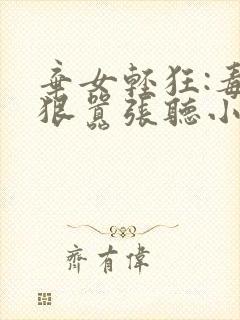 棄女輕狂:毒
狠囂張聽小
齊有偉